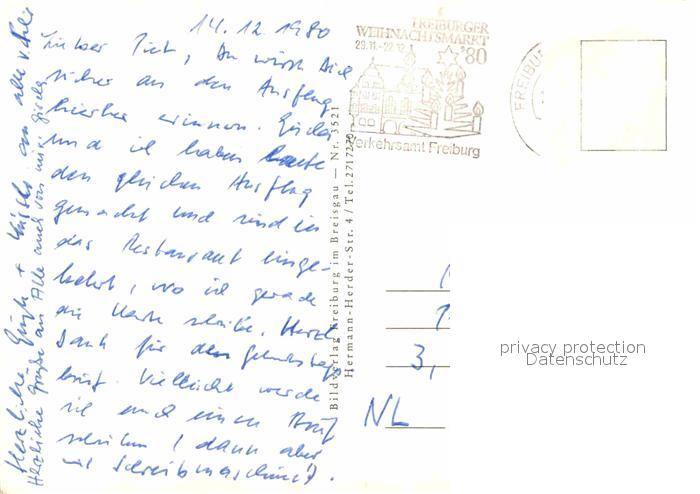 14.12.1980
Lieber Piet, Du wirst Dich
sicher an den Ausflug
hierher erinnern. Gisela
und ich haben heute
den gleichen Ausflug
gemacht und sind in
das Restaurant einge-
kehrt, wo ich gerade
die Karte schreibe. Herzl.
Dank für den Geburtstags-
brief. Vielleicht werde
ich auch einen Brief
schreiben, dann aber
mit Schreibmaschine!
Herzliche Grüße + Küsse an alle v.
Herzliche Grüße an Alle auch von mir Gisela
Bildverlag Freiburg im Breisgau — Nr. 3521
Hermann-Herder-Str. 4 / Tel. 2717
FREIBURGER
WEIHNACHTSMARKT
29.11.-22.12. '80
Verkehrsamt Freiburg
FREIBU
3,
NL
privacy protection
Datenschutz